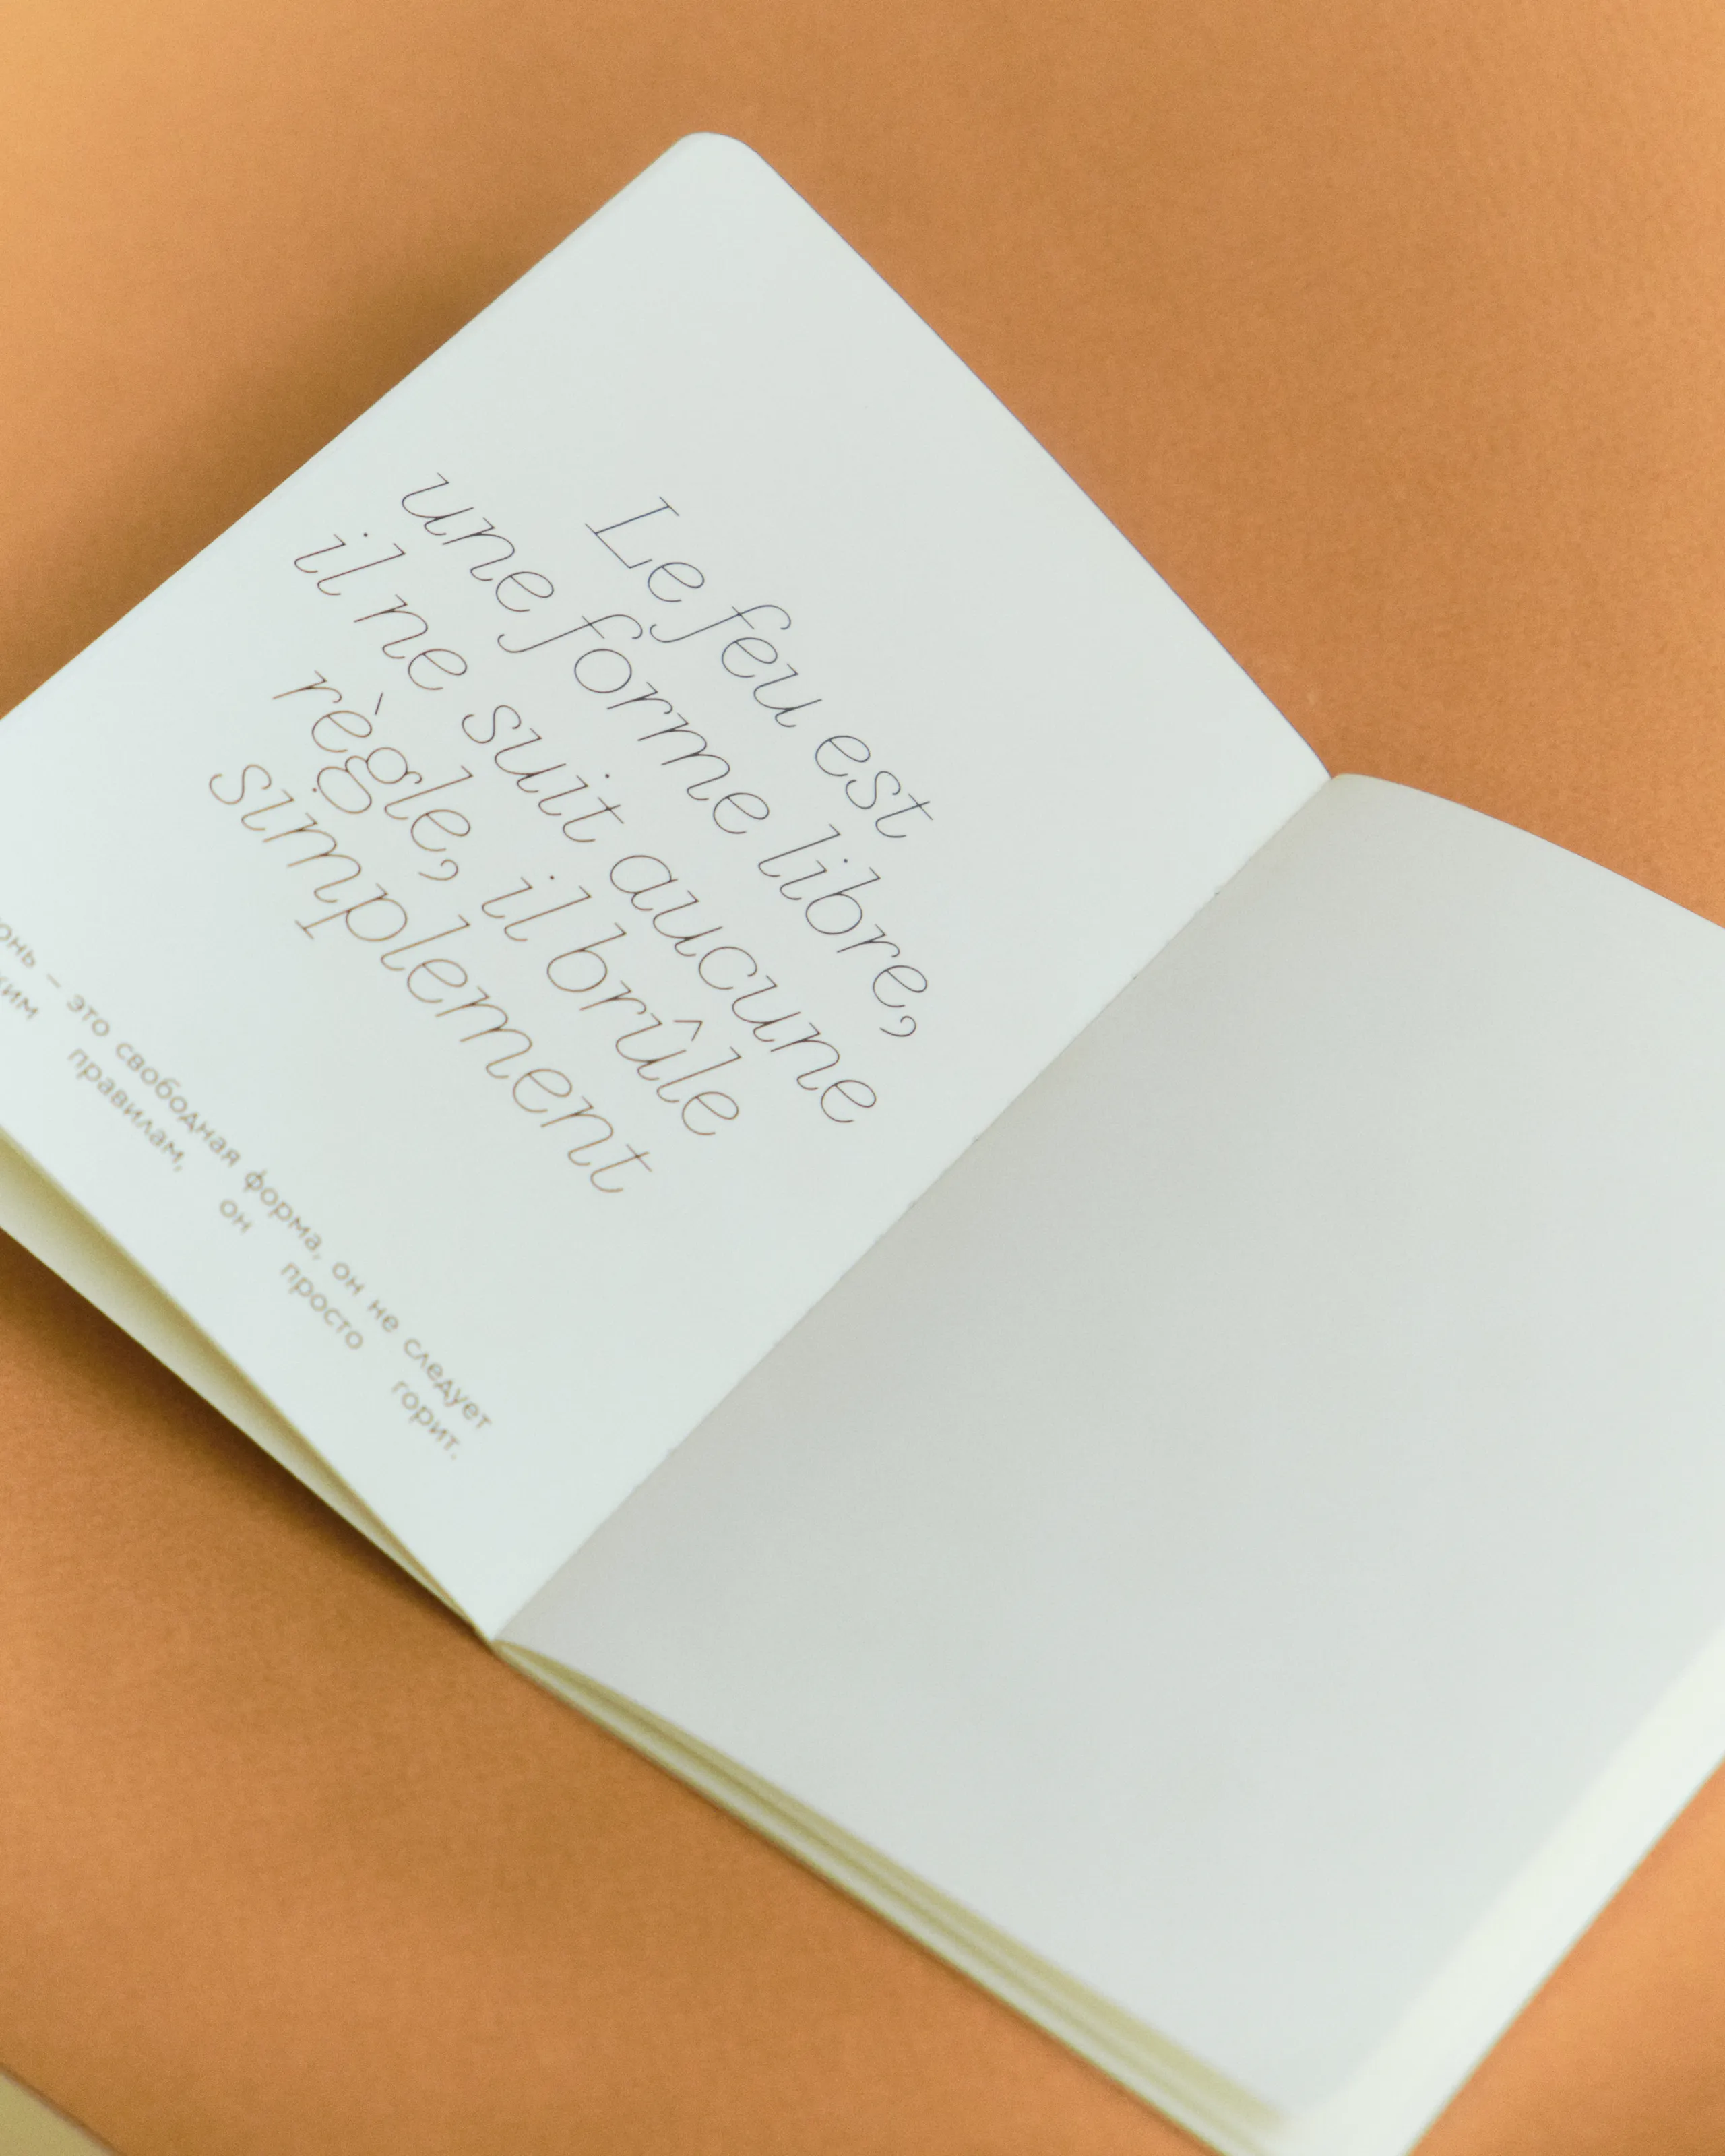 Le feu est
une forme libre,
il ne suit aucune
règle, il brûle
simplement
— это свободная форма, он не следует
правилам, он просто горит.